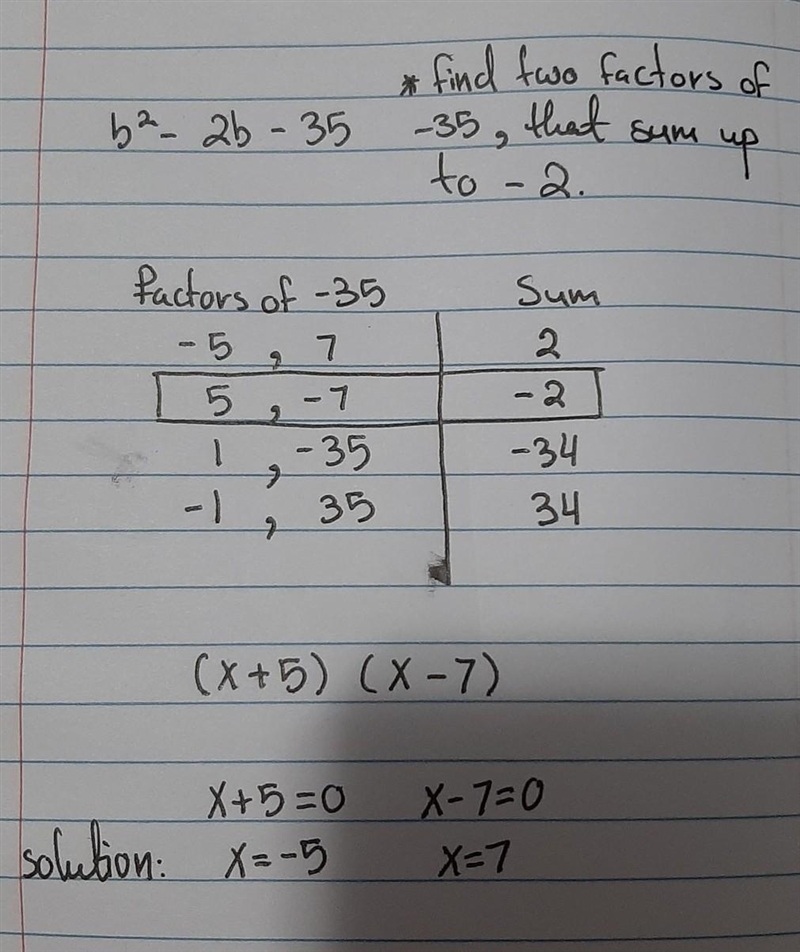 * find two factors of
b² - 2b - 35 -35, that sum up
to - 2.
factors of -35 Sum
-5 , 7 2
5 , -7 -2
1 , -35 -34
-1 , 35 34
(x+5) (x-7)
x+5=0 x-7=0
solution: x=-5 x=7